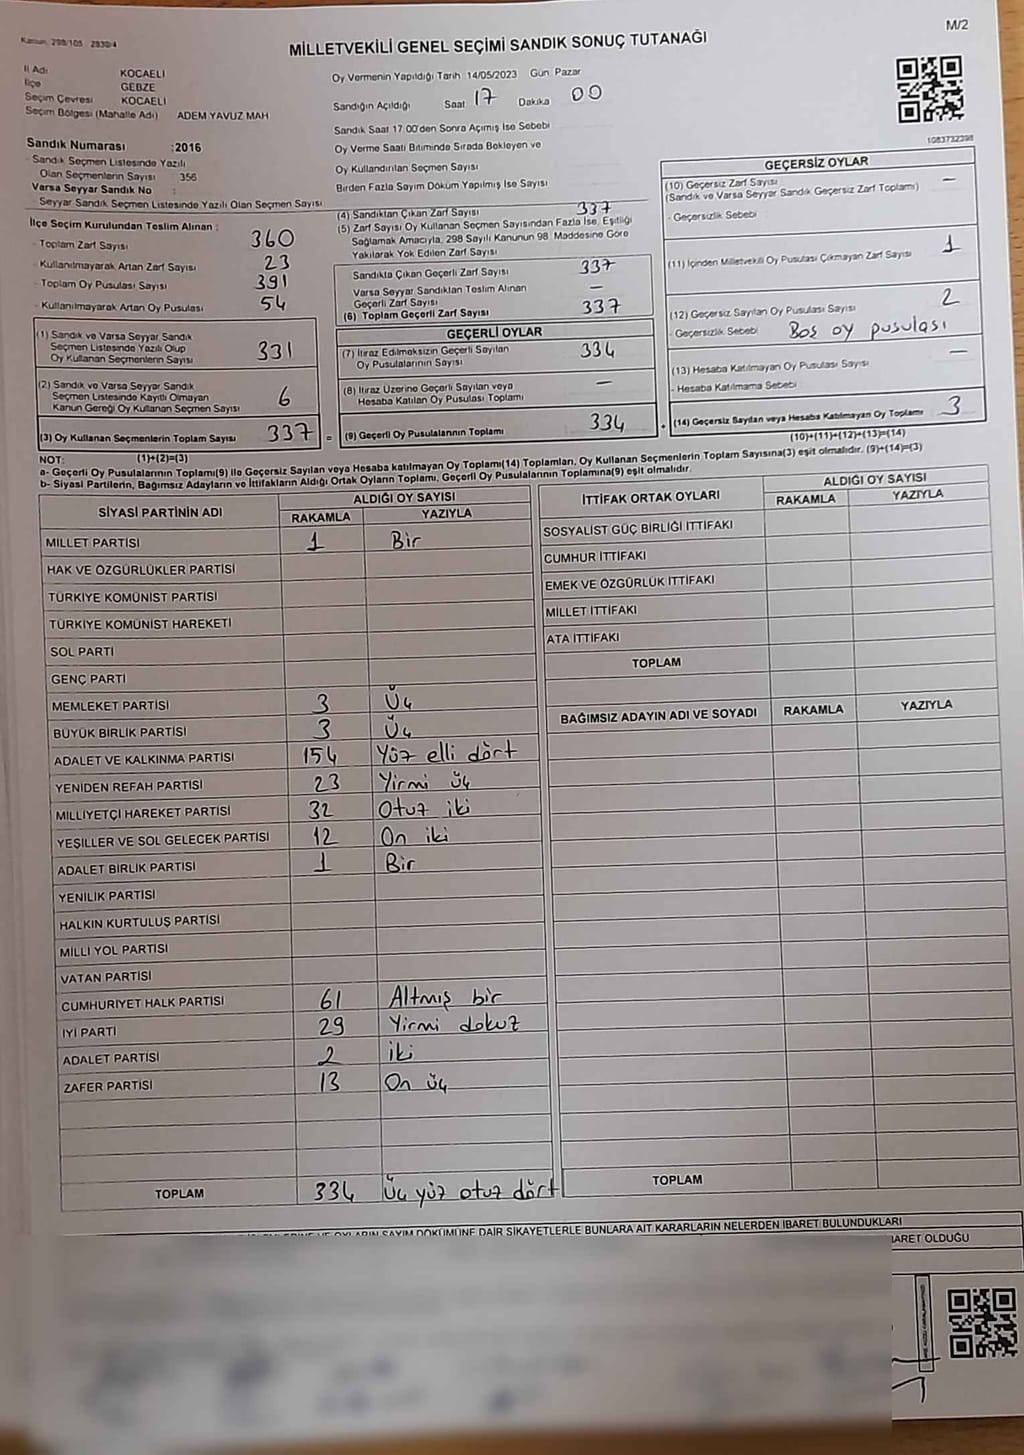 Kanun: 298/105 2839/4
M/2
MİLLETVEKİLİ GENEL SEÇİMİ SANDIK SONUÇ TUTANAĞI
İl Adı KOCAELİ
İlçe GEBZE
Seçim Çevresi KOCAELİ
Seçim Bölgesi (Mahalle Adı) ADEM YAVUZ MAH
Sandık Numarası :2016
- Sandık Seçmen Listesinde Yazılı
Olan Seçmenlerin Sayısı 356
Varsa Seyyar Sandık No :
- Seyyar Sandık Seçmen Listesinde Yazılı Olan Seçmen Sayısı
İlçe Seçim Kurulundan Teslim Alınan :
- Toplam Zarf Sayısı 360
- Kullanılmayarak Artan Zarf Sayısı 23
- Toplam Oy Pusulası Sayısı 391
- Kullanılmayarak Artan Oy Pusulası 54
(1) Sandık ve Varsa Seyyar Sandık
Seçmen Listesinde Yazılı Olup
Oy Kullanan Seçmenlerin Sayısı 331
(2) Sandık ve Varsa Seyyar Sandık
Seçmen Listesinde Kayıtlı Olmayan
Kanun Gereği Oy Kullanan Seçmen Sayısı 6
(3) Oy Kullanan Seçmenlerin Toplam Sayısı 337 =
Oy Vermenin Yapıldığı Tarih 14/05/2023 Gün Pazar
Sandığın Açıldığı Saat 17 Dakika 00
Sandık Saat 17:00'den Sonra Açımış İse Sebebi
Oy Verme Saati Bitiminde Sırada Bekleyen ve
Oy Kullandırılan Seçmen Sayısı
Birden Fazla Sayım Döküm Yapılmış İse Sayısı
(4) Sandıktan Çıkan Zarf Sayısı 337
(5) Zarf Sayısı Oy Kullanan Seçmen Sayısından Fazla İse, Eşitliği
Sağlamak Amacıyla, 298 Sayılı Kanunun 98. Maddesine Göre
Yakılarak Yok Edilen Zarf Sayısı
Sandıkta Çıkan Geçerli Zarf Sayısı 337
Varsa Seyyar Sandıktan Teslim Alınan
Geçerli Zarf Sayısı —
(6) Toplam Geçerli Zarf Sayısı 337
GEÇERLİ OYLAR
(7) İtiraz Edilmeksizin Geçerli Sayılan
Oy Pusulalarının Sayısı 334
(8) İtiraz Üzerine Geçerli Sayılan veya
Hesaba Katılan Oy Pusulası Toplamı —
(9) Geçerli Oy Pusulalarının Toplamı 334 +
1083732398
GEÇERSİZ OYLAR
(10) Geçersiz Zarf Sayısı —
(Sandık ve Varsa Seyyar Sandık Geçersiz Zarf Toplamı)
- Geçersizlik Sebebi
(11) İçinden Milletvekili Oy Pusulası Çıkmayan Zarf Sayısı 1
(12) Geçersiz Sayılan Oy Pusulası Sayısı 2
- Geçersizlik Sebebi Boş oy pusulası
(13) Hesaba Katılmayan Oy Pusulası Sayısı —
- Hesaba Katılmama Sebebi
(14) Geçersiz Sayılan veya Hesaba Katılmayan Oy Toplamı 3
(10)+(11)+(12)+(13)=(14)
NOT: (1)+(2)=(3)
a- Geçerli Oy Pusulalarının Toplamı(9) ile Geçersiz Sayılan veya Hesaba katılmayan Oy Toplamı(14) Toplamları, Oy Kullanan Seçmenlerin Toplam Sayısına(3) eşit olmalıdır. (9)+(14)=(3)
b- Siyasi Partilerin, Bağımsız Adayların ve İttifakların Aldığı Ortak Oyların Toplamı, Geçerli Oy Pusulalarının Toplamına(9) eşit olmalıdır.
SİYASİ PARTİNİN ADI ALDIĞI OY SAYISI
RAKAMLA YAZIYLA
MİLLET PARTİSİ 1 Bir
HAK VE ÖZGÜRLÜKLER PARTİSİ
TÜRKİYE KOMÜNİST PARTİSİ
TÜRKİYE KOMÜNİST HAREKETİ
SOL PARTİ
GENÇ PARTİ
MEMLEKET PARTİSİ 3 Üç
BÜYÜK BİRLİK PARTİSİ 3 Üç
ADALET VE KALKINMA PARTİSİ 154 Yüz elli dört
YENİDEN REFAH PARTİSİ 23 Yirmi üç
MİLLİYETÇİ HAREKET PARTİSİ 32 Otuz iki
YEŞİLLER VE SOL GELECEK PARTİSİ 12 On iki
ADALET BİRLİK PARTİSİ 1 Bir
YENİLİK PARTİSİ
HALKIN KURTULUŞ PARTİSİ
MİLLİ YOL PARTİSİ
VATAN PARTİSİ
CUMHURİYET HALK PARTİSİ 61 Altmış bir
İYİ PARTİ 29 Yirmi dokuz
ADALET PARTİSİ 2 İki
ZAFER PARTİSİ 13 On üç
TOPLAM 334 Üç yüz otuz dört
İTTİFAK ORTAK OYLARI ALDIĞI OY SAYISI
RAKAMLA YAZIYLA
SOSYALİST GÜÇ BİRLİĞİ İTTİFAKI
CUMHUR İTTİFAKI
EMEK VE ÖZGÜRLÜK İTTİFAKI
MİLLET İTTİFAKI
ATA İTTİFAKI
TOPLAM
BAĞIMSIZ ADAYIN ADI VE SOYADI RAKAMLA YAZIYLA
TOPLAM
OYLARIN SAYIM DÖKÜMÜNE DAİR ŞİKAYETLERLE BUNLARA AİT KARARLARIN NELERDEN İBARET BULUNDUKLARI
OLDUĞU